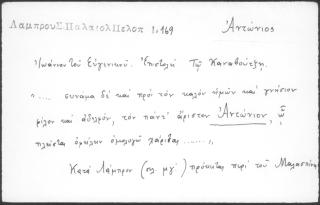 Λάμπρου Σ. Παλαιολ Πελοπ 1,169 Ἀντώνιος
Ἰωάννου τοῦ Εὐγενικοῦ. Ἐπιστολὴ Τῷ Καναβούτζῃ.
"..... συναμα δέ καὶ πρὸς τὸν καλὸν ὑμῶν καὶ γνήσιον
φίλον καὶ ἀδελφόν, τὸν πάντ' ἄριστον Ἀντώνιον, ᾧ
πλείστας ὀμολογῶ χάριτας ......,
Κατά Λάμπρον (σελ μγ´) πρόκειται περὶ τοῦ Μαλασπίνα